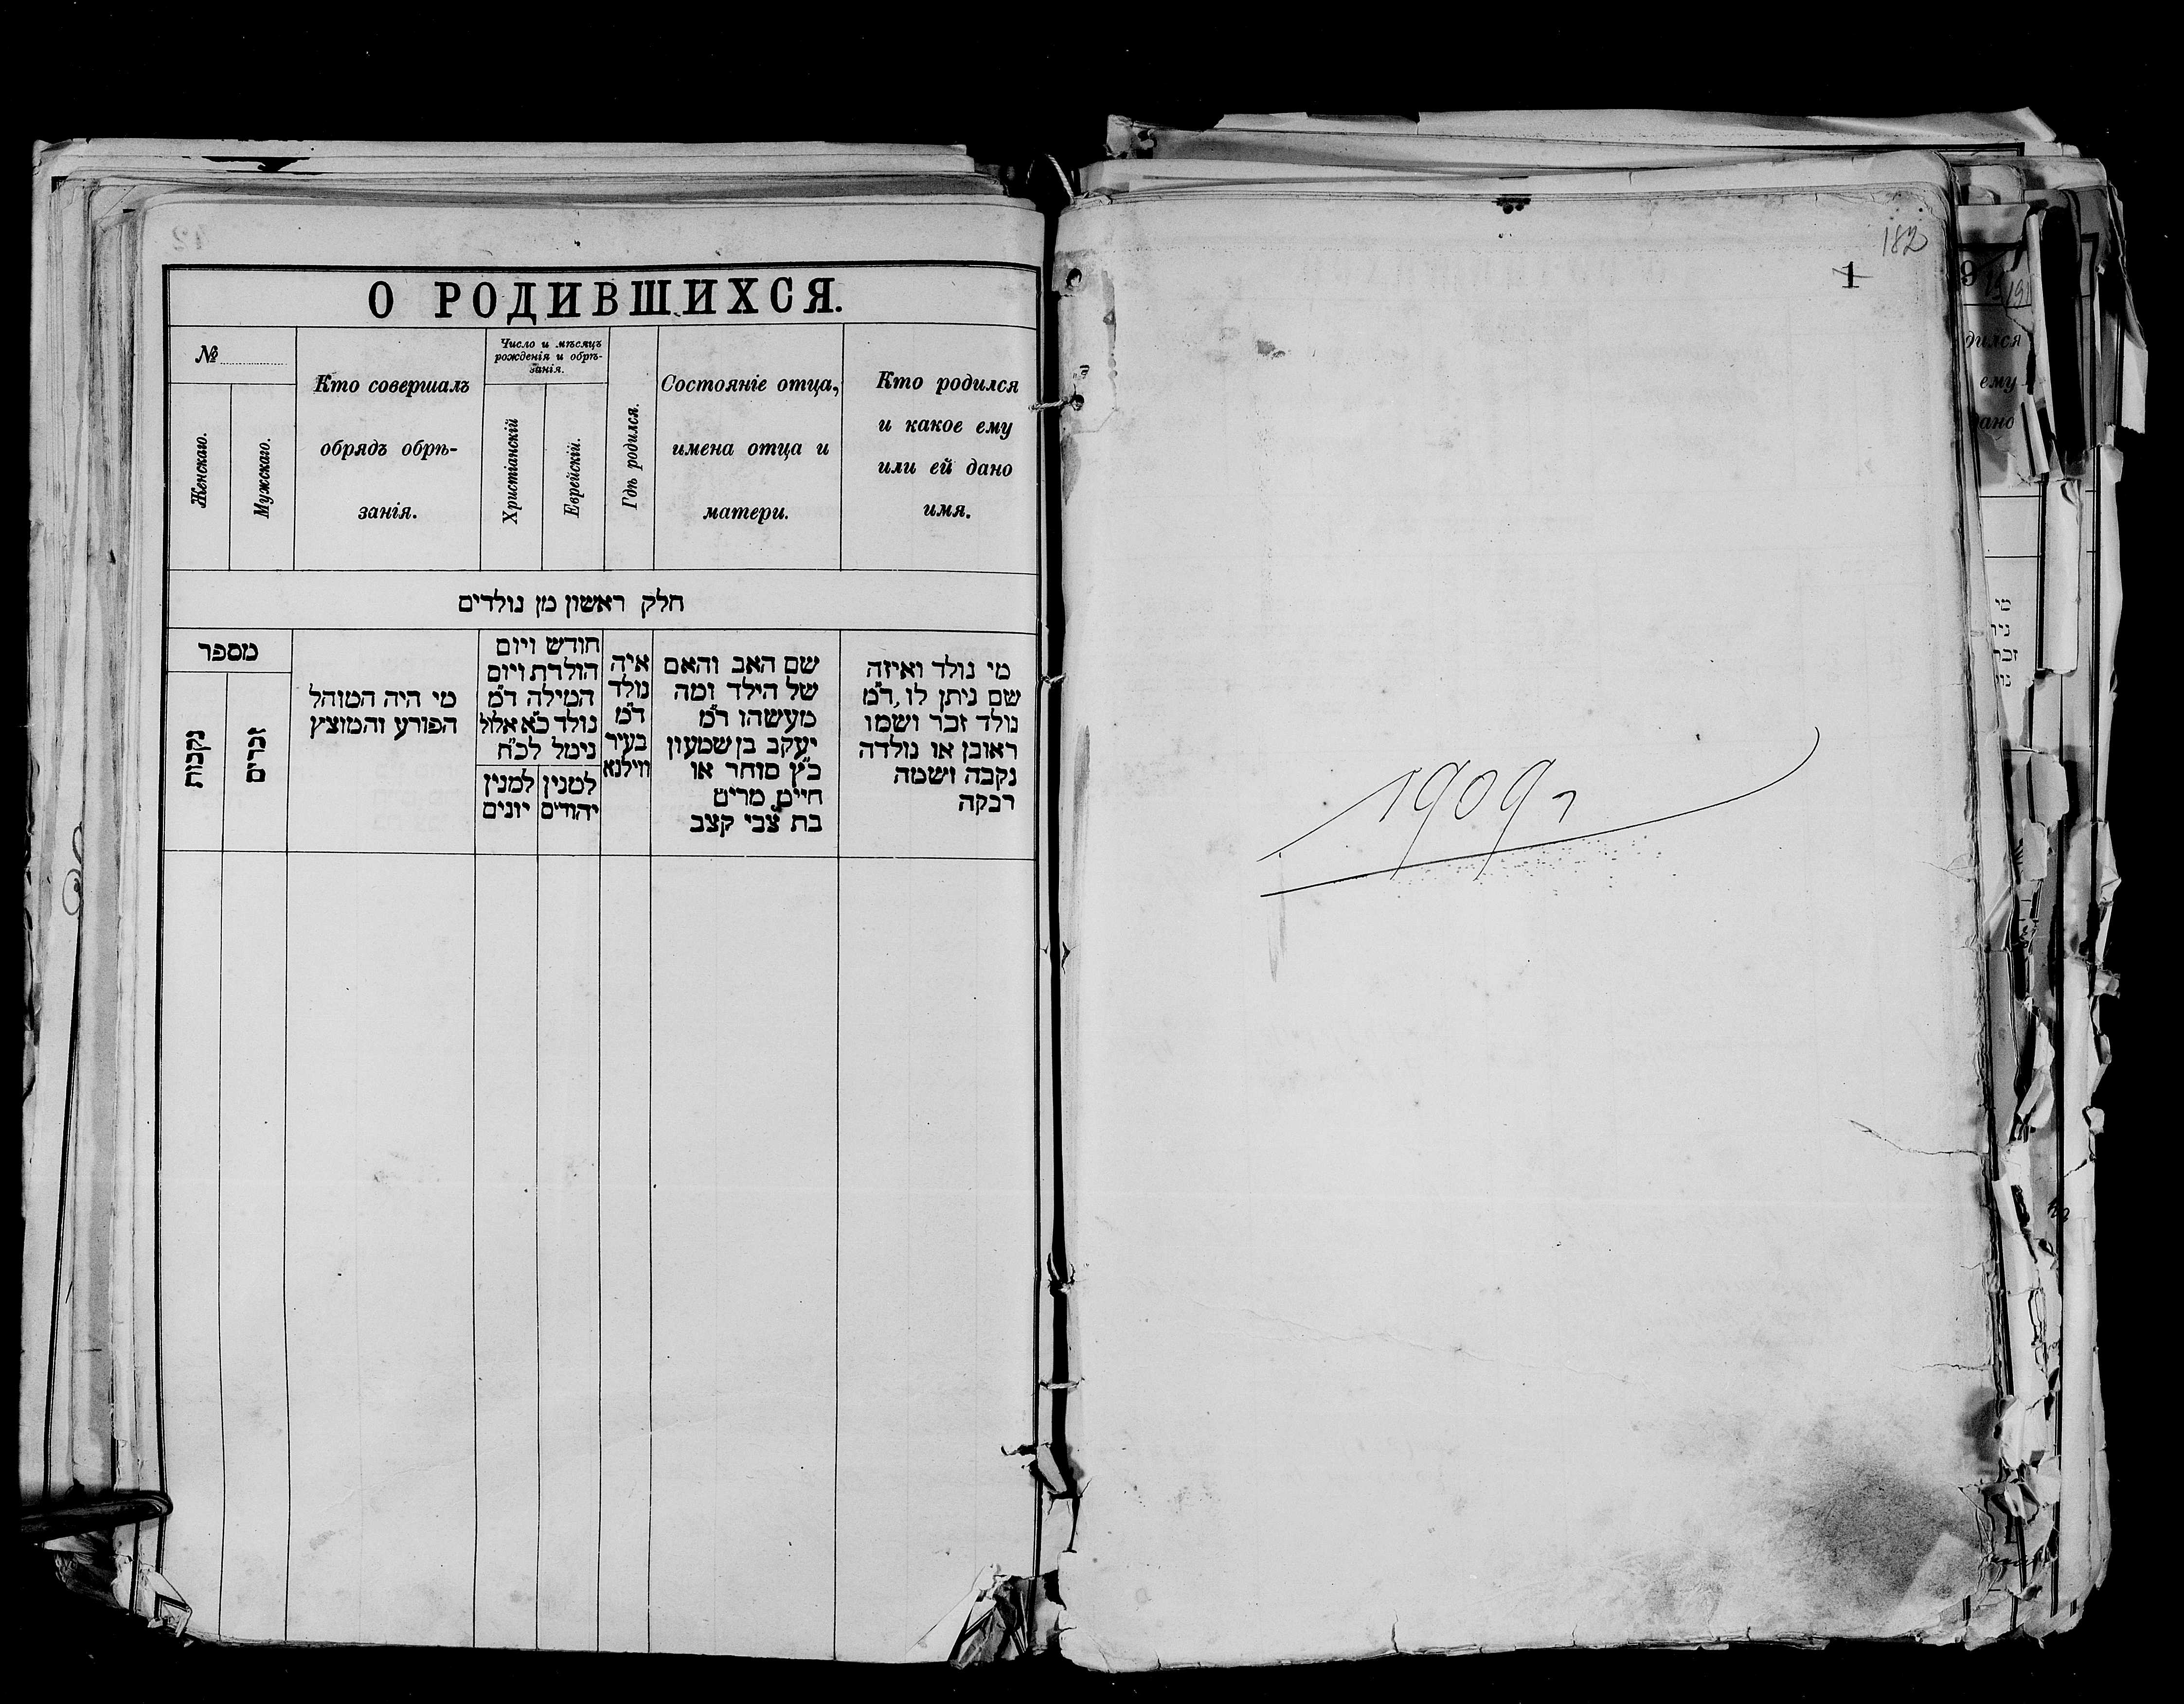 О РОДИВШИХСЯ.
№
Женскаго.
Мужскаго.
Кто совершалъ
обрядъ обрѣ-
занія.
Число и мѣсяцъ
рожденія и обрѣ-
занія.
Христіанскій
Еврейскій.
Гдѣ родился.
Состояніе отца,
имена отца и
матери.
Кто родился
и какое ему
или ей дано
имя.
חלק ראשון מן נולדים
מספר
נקבות
זכרים
מי היה המוהל
הפורע והמוצץ
חודש ויום
הולדת ויום
המילה ד״מ
נולד כ״א אלול
נימל לכ״ח
למנין
יונים
למנין
יהודים
איה
נולד
ד״מ
בעיר
ווילנא
שם האב והאם
של הילד ומה
מעשהו ד״מ
יעקב בן שמעון
כ״ץ סוחר או
חיים, מרים
בת צבי קצב
מי נולד ואיזה
שם ניתן לו, ד״מ
נולד זכר ושמו
ראובן או נולדה
נקבה ושמה
רבקה
182
1
1909 г
9
дился
ему
дано